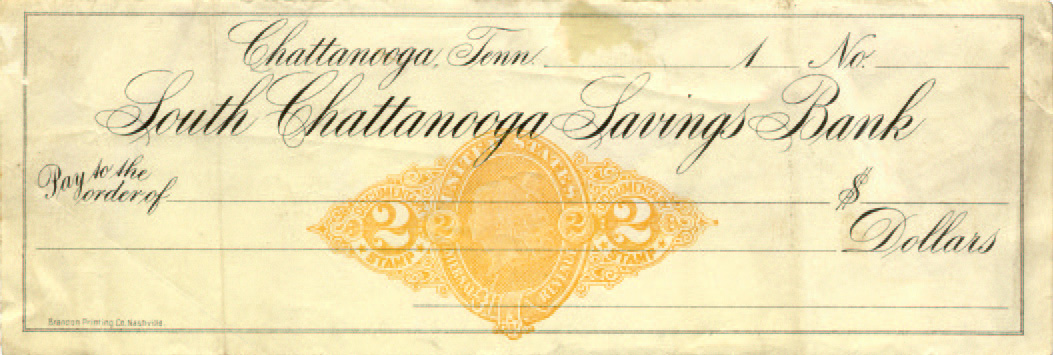 Chattanooga, Tenn. 1 No.
South Chattanooga Savings Bank
Pay to the order of $
Dollars
UNITED STATES
DOCUMENTARY DOCUMENTARY
2 2 2 2
STAMP STAMP
INTERNAL REVENUE
Brandon Printing Co. Nashville